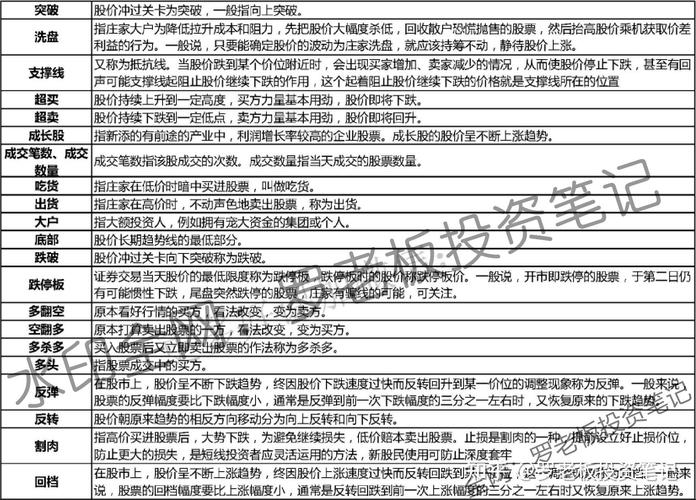 突破 股价冲过关卡为突破，一般指向上突破。
洗盘 指庄家大户为降低拉升成本和阻力，先把股价大幅度杀低，回收散户恐慌抛售的股票，然后抬高股价乘机获取价差
利益的行为。一般说，只要能确定股价的波动为庄家洗盘，就应该持筹不动，静待股价上涨。
支撑线 又称为抵抗线。当股价跌到某个价位附近时，会出现买家增加、卖家减少的情况，从而使股价停止下跌，甚至有回
声可能支撑线起阻止股价继续下跌的作用，这个起着阻止股价继续下跌的价格就是支撑线所在的位置
超买 股价持续上升到一定高度，买方力量基本用劲，股价即将下跌。
超卖 股价持续下跌到一定低点，卖方力量基本用劲，股价即将回升。
成长股 指新添的有前途的产业中，利润增长率较高的企业股票。成长股的股价呈不断上涨趋势。
成交笔数、成交
数量 成交笔数指该股成交的次数。成交数量指当天成交的股票数量。
吃货 指庄家在低价时暗中买进股票，叫做吃货。
出货 指庄家在高价时，不动声色地卖出股票，称为出货。
大户 指大额投资人，例如拥有宠大资金的集团或个人。
底部 股价长期趋势线的最低部分。
跌破 股价冲过关卡向下突破称为跌破。
跌停板 证券交易当天股价的最低限度称为跌停板，跌停板时的股价称跌停板价。一般说，开市即跌停的股票，于第二日仍
有可能惯性下跌，尾盘突然跌停的股票，庄家有骗线的可能，可关注。
多翻空 原本看好行情的买方，看法改变，变为卖方。
空翻多 原本打算卖出股票的一方，看法改变，变为买方。
多杀多 买入股票后又立即卖出股票的作法称为多杀多。
多头 指股票成交中的买方。
反弹 在股市上，股价呈不断下跌趋势，终因股价下跌速度过快而反转回升到某一价位的调整现象称为反弹。一般来说，
股票的反弹幅度要比下跌幅度小，通常是反弹到前一次下跌幅度的三分之一左右时，又恢复原来的下跌趋势。
反转 股价朝原来趋势的相反方向移动分为向上反转和向下反转。
割肉 指高价买进股票后，大势下跌，为避免继续损失，低价赔本卖出股票。止损是割肉的一种，提前设立好止损价位，
防止更大的损失，是短线投资者应灵活运用的方法，新股民使用可防止深度套牢
回档 在股市上，股价呈不断上涨趋势，终因股价上涨速度过快而反转回跌到
说，股票的回档幅度要比上涨幅度小，通常是反转回跌到前一次上涨幅度的三分之一左右时又恢复原来上涨趋势。
水印全网：罗老板投资笔记
全网：罗老板投资笔记
知乎 @罗老板投资笔记